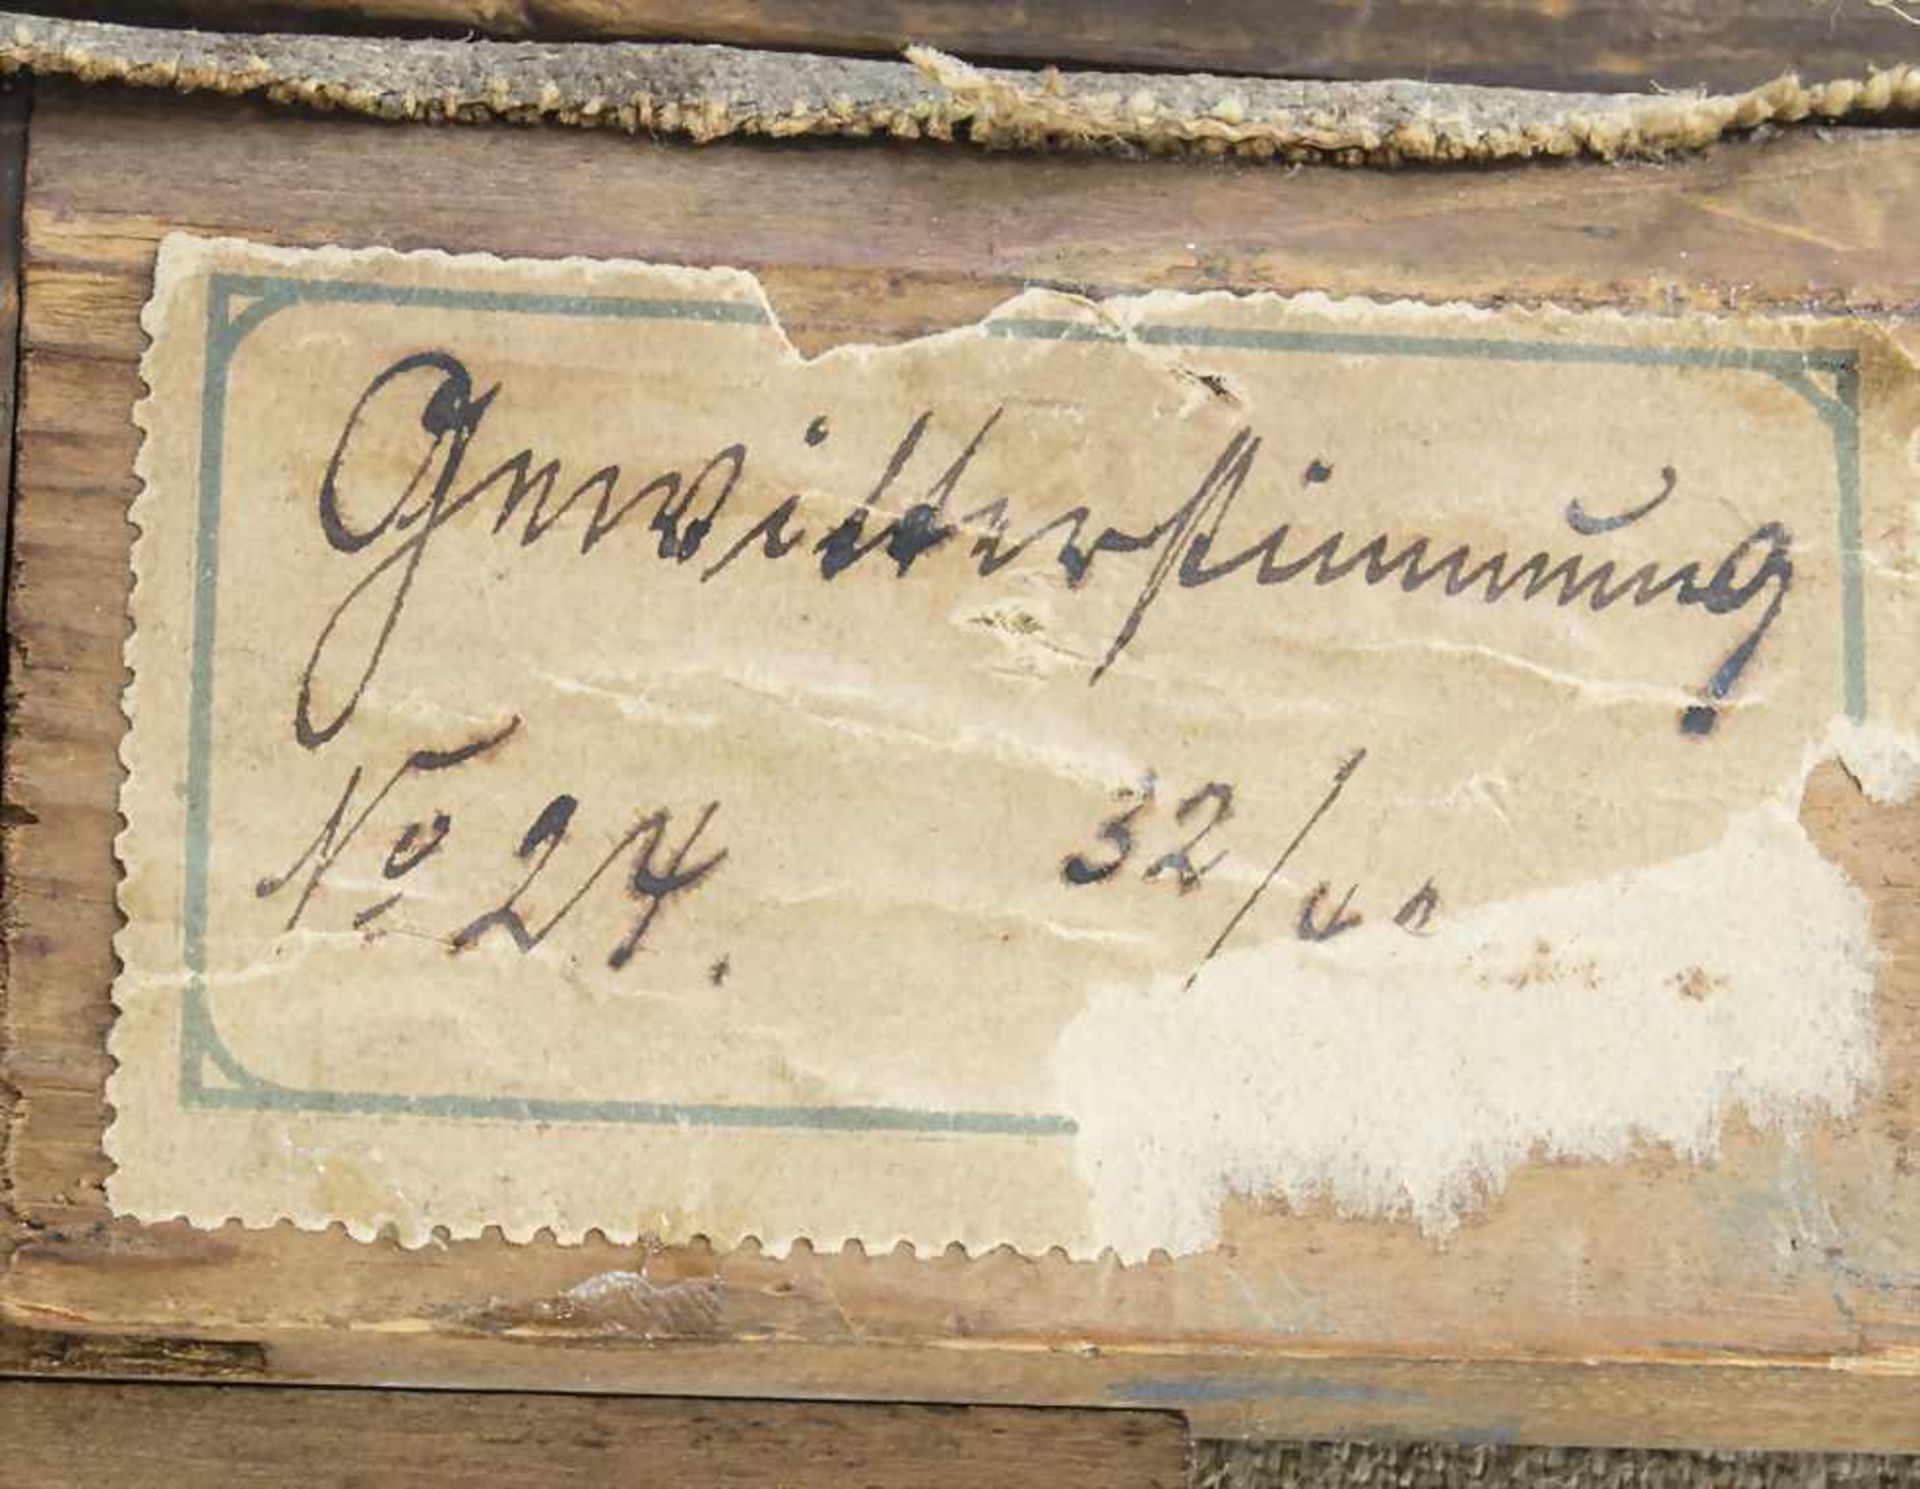 Gewitterstimmung
No 24. 32/40